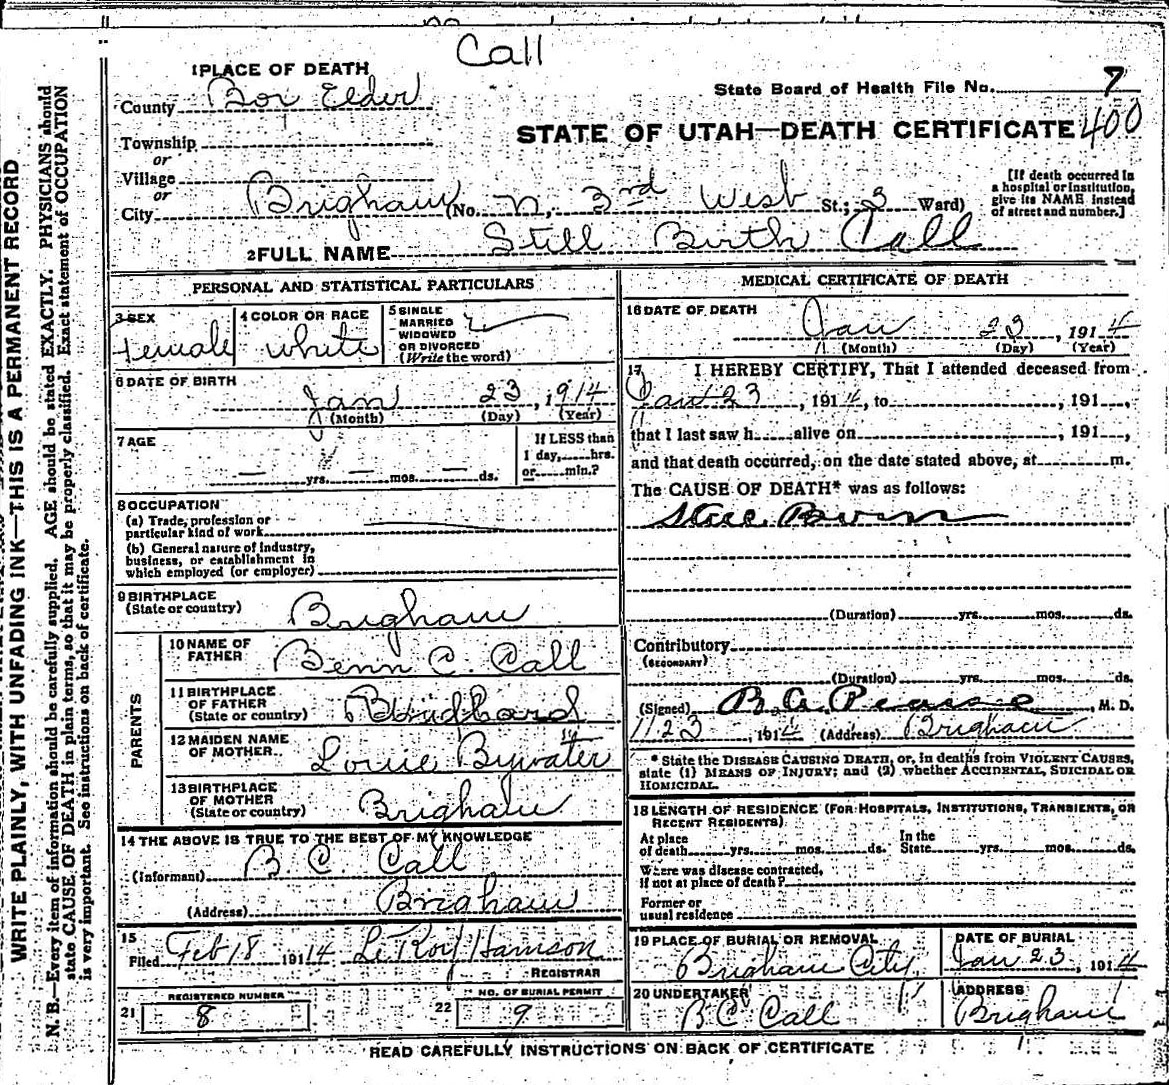 Call
1 PLACE OF DEATH
County Box Elder
State Board of Health File No. 7
STATE OF UTAH—DEATH CERTIFICATE 400
Township
or
Village
or
City Brigham (No. N. 3rd West St.; 3 Ward)
[If death occurred in
a hospital or institution,
give its NAME instead
of street and number.]
2 FULL NAME Still Birth Call
PERSONAL AND STATISTICAL PARTICULARS
3 SEX
female
4 COLOR OR RACE
white
5 SINGLE
MARRIED
WIDOWED
OR DIVORCED
(Write the word)
6 DATE OF BIRTH
Jan 23, 1914
(Month) (Day) (Year)
7 AGE
— yrs. — mos. — ds.
If LESS than
1 day, hrs.
or min.?
8 OCCUPATION
(a) Trade, profession or
particular kind of work
(b) General nature of industry,
business, or establishment in
which employed (or employer)
9 BIRTHPLACE
(State or country) Brigham
PARENTS
10 NAME OF
FATHER Benn C. Call
11 BIRTHPLACE
OF FATHER
(State or country)
12 MAIDEN NAME
OF MOTHER Louie Bywater
13 BIRTHPLACE
OF MOTHER
(State or country) Brigham
14 THE ABOVE IS TRUE TO THE BEST OF MY KNOWLEDGE
(Informant) B C Call
(Address) Brigham
15
Filed Feb 18 1914 LeRoy Harrison
REGISTRAR
REGISTERED NUMBER
21 8
NO. OF BURIAL PERMIT
22 9
MEDICAL CERTIFICATE OF DEATH
16 DATE OF DEATH
Jan 23, 1914
(Month) (Day) (Year)
17 I HEREBY CERTIFY, That I attended deceased from
Jan 23, 1914, to , 191 ,
that I last saw h alive on , 191 ,
and that death occurred, on the date stated above, at m.
The CAUSE OF DEATH* was as follows:
Still Born
(Duration) yrs. mos. ds.
Contributory
(SECONDARY)
(Duration) yrs. mos. ds.
(Signed) , M. D.
1 23, 1914 (Address) Brigham
* State the DISEASE CAUSING DEATH, or, in deaths from VIOLENT CAUSES,
state (1) MEANS OF INJURY; and (2) whether ACCIDENTAL, SUICIDAL OR
HOMICIDAL.
18 LENGTH OF RESIDENCE (FOR HOSPITALS, INSTITUTIONS, TRANSIENTS, OR
RECENT RESIDENTS)
At place
of death yrs. mos. ds.
In the
State yrs. mos. ds.
Where was disease contracted,
if not at place of death?
Former or
usual residence
19 PLACE OF BURIAL OR REMOVAL
Brigham City
DATE OF BURIAL
Jan 23, 1914
20 UNDERTAKER
B C Call
ADDRESS
Brigham
READ CAREFULLY INSTRUCTIONS ON BACK OF CERTIFICATE
WRITE PLAINLY, WITH UNFADING INK—THIS IS A PERMANENT RECORD
N. B.—Every item of information should be carefully supplied. AGE should be stated EXACTLY. PHYSICIANS should
state CAUSE OF DEATH in plain terms, so that it may be properly classified. Exact statement of OCCUPATION
is very important. See instructions on back of certificate.